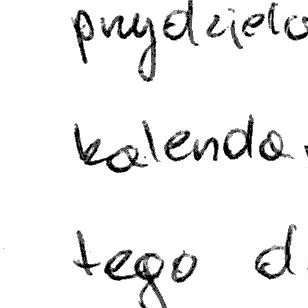 przydzielo
kalenda
tego d